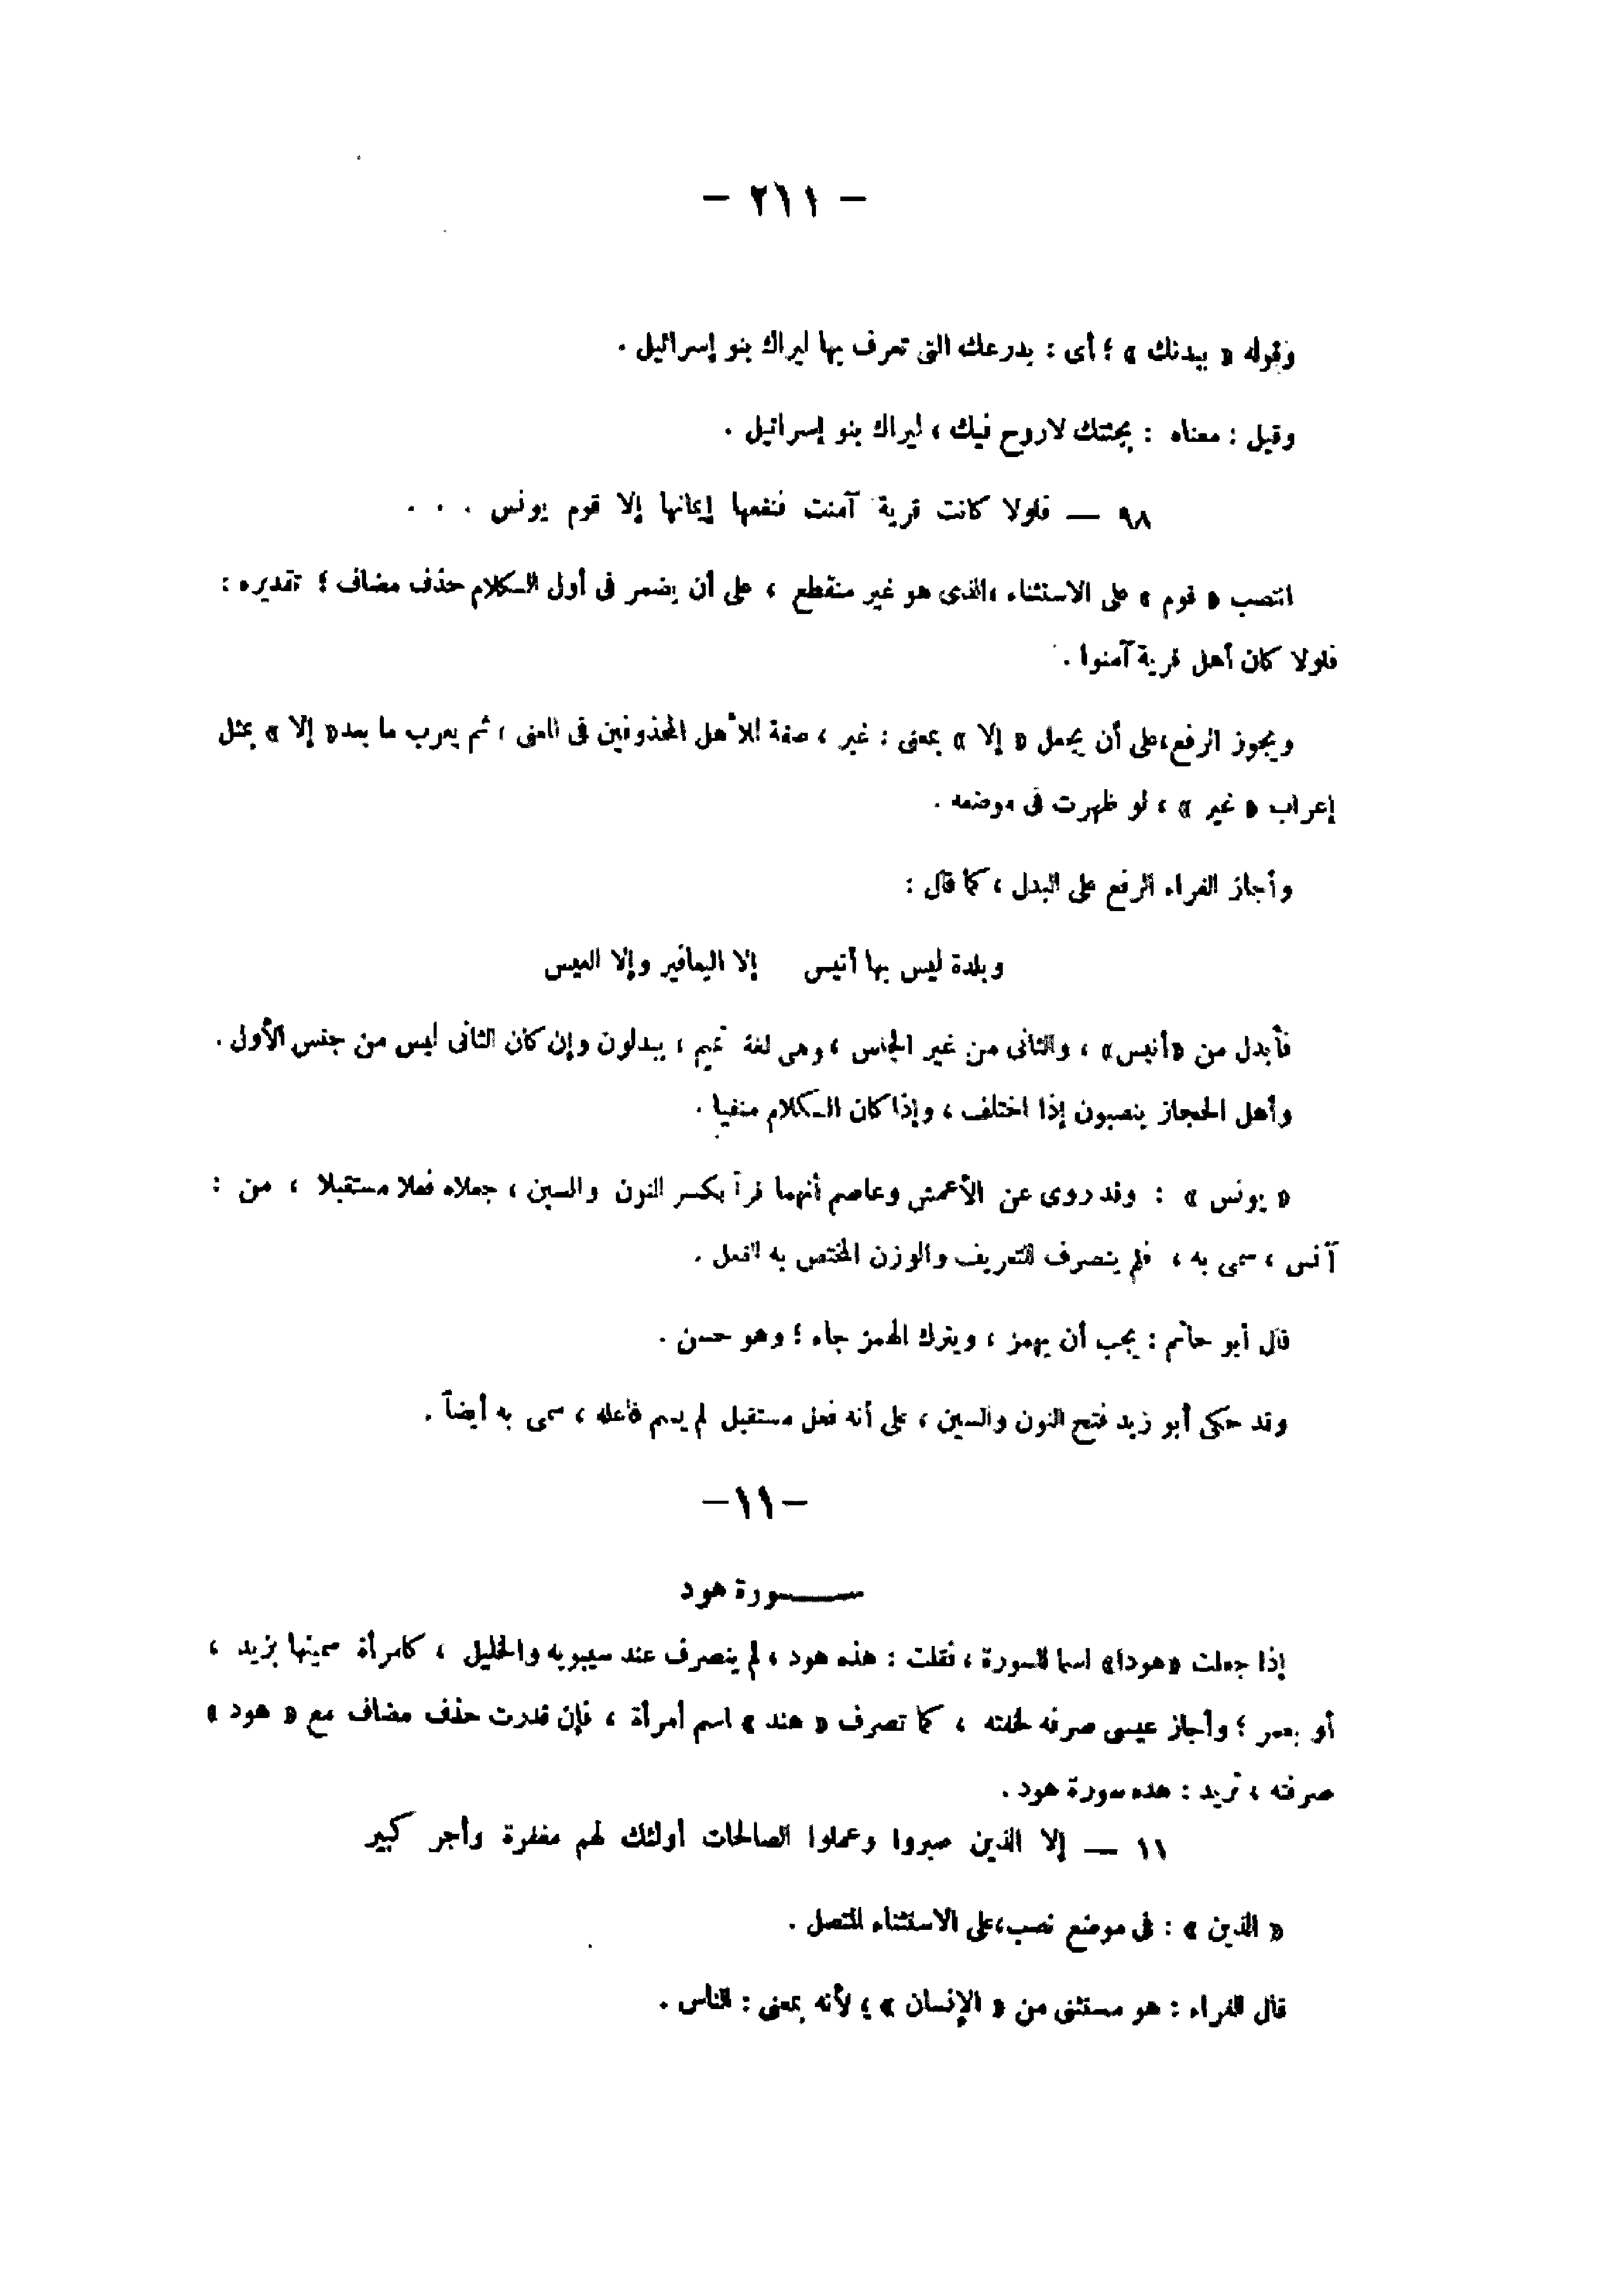 — ٢٦١ —
وقوله « ببدنك » ؛ أى : بدرعك التى تعرف بها ليراك بنو إسرائيل .
وقيل : معناه : بجثتك لاروح فيك ، ليراك بنو إسرائيل .
٩٨ — فلولا كانت قرية آمنت فنفعها إيمانها إلا قوم يونس . . .
انتصب « قوم » على الاستثناء ،الذى هو غير منقطع ، على أن يضمر فى أول الكلام حذف مضاف ؛ تقديره :
فلولا كان أهل قرية آمنوا .
ويجوز الرفع،على أن يجعل « إلا » بمعنى : غير ، صفة للأهل المحذوفين فى المعنى ، ثم يعرب ما بعد« إلا » بمثل
إعراب « غير » ، لو ظهرت فى موضعه .
وأجاز الفراء الرفع على البدل ، كما قال :
وبلدة ليس بها أنيس إلا اليعافير وإلا العيس
فأبدل من «أنيس» ، والثانى من غير الجنس ، وهى لغة تميم ، يبدلون وإن كان الثانى ليس من جنس الأول .
وأهل الحجاز ينصبون إذا اختلف ، وإذا كان الكلام منفيا .
« يونس » : وقد روى عن الأعمش وعاصم أنهما قرآ بكسر النون والسين ، جعلاه فعلا مستقبلا ، من :
آنس ، سمى به ، فلم ينصرف للتعريف والوزن المختص به الفعل .
قال أبو حاتم : يجب أن يهمز ، ويترك الهمز جاء ؛ وهو حسن .
وقد حكى أبو زيد فتح النون والسين ، على أنه فعل مستقبل لم يسم فاعله ، سمى به أيضاً .
—١١—
ســـورة هود
إذا جعلت «هودا» اسما للسورة ، فقلت : هذه هود ، لم ينصرف عند سيبويه والخليل ، كامرأة سميتها بزيد ،
أو بعمر ؛ وأجاز عيسى صرفه لخفته ، كما تصرف « هند » اسم أمرأة ، فإن قدرت حذف مضاف مع « هود »
صرفته ، تريد : هذه سورة هود .
١١ — إلا الذين صبروا وعملوا الصالحات أولئك لهم مغفرة وأجر كبير
« الذين » : فى موضع نصب،على الاستثناء المتصل .
قال الفراء : هو مستثنى من « الإنسان » ؛ لأنه بمعنى : الناس .